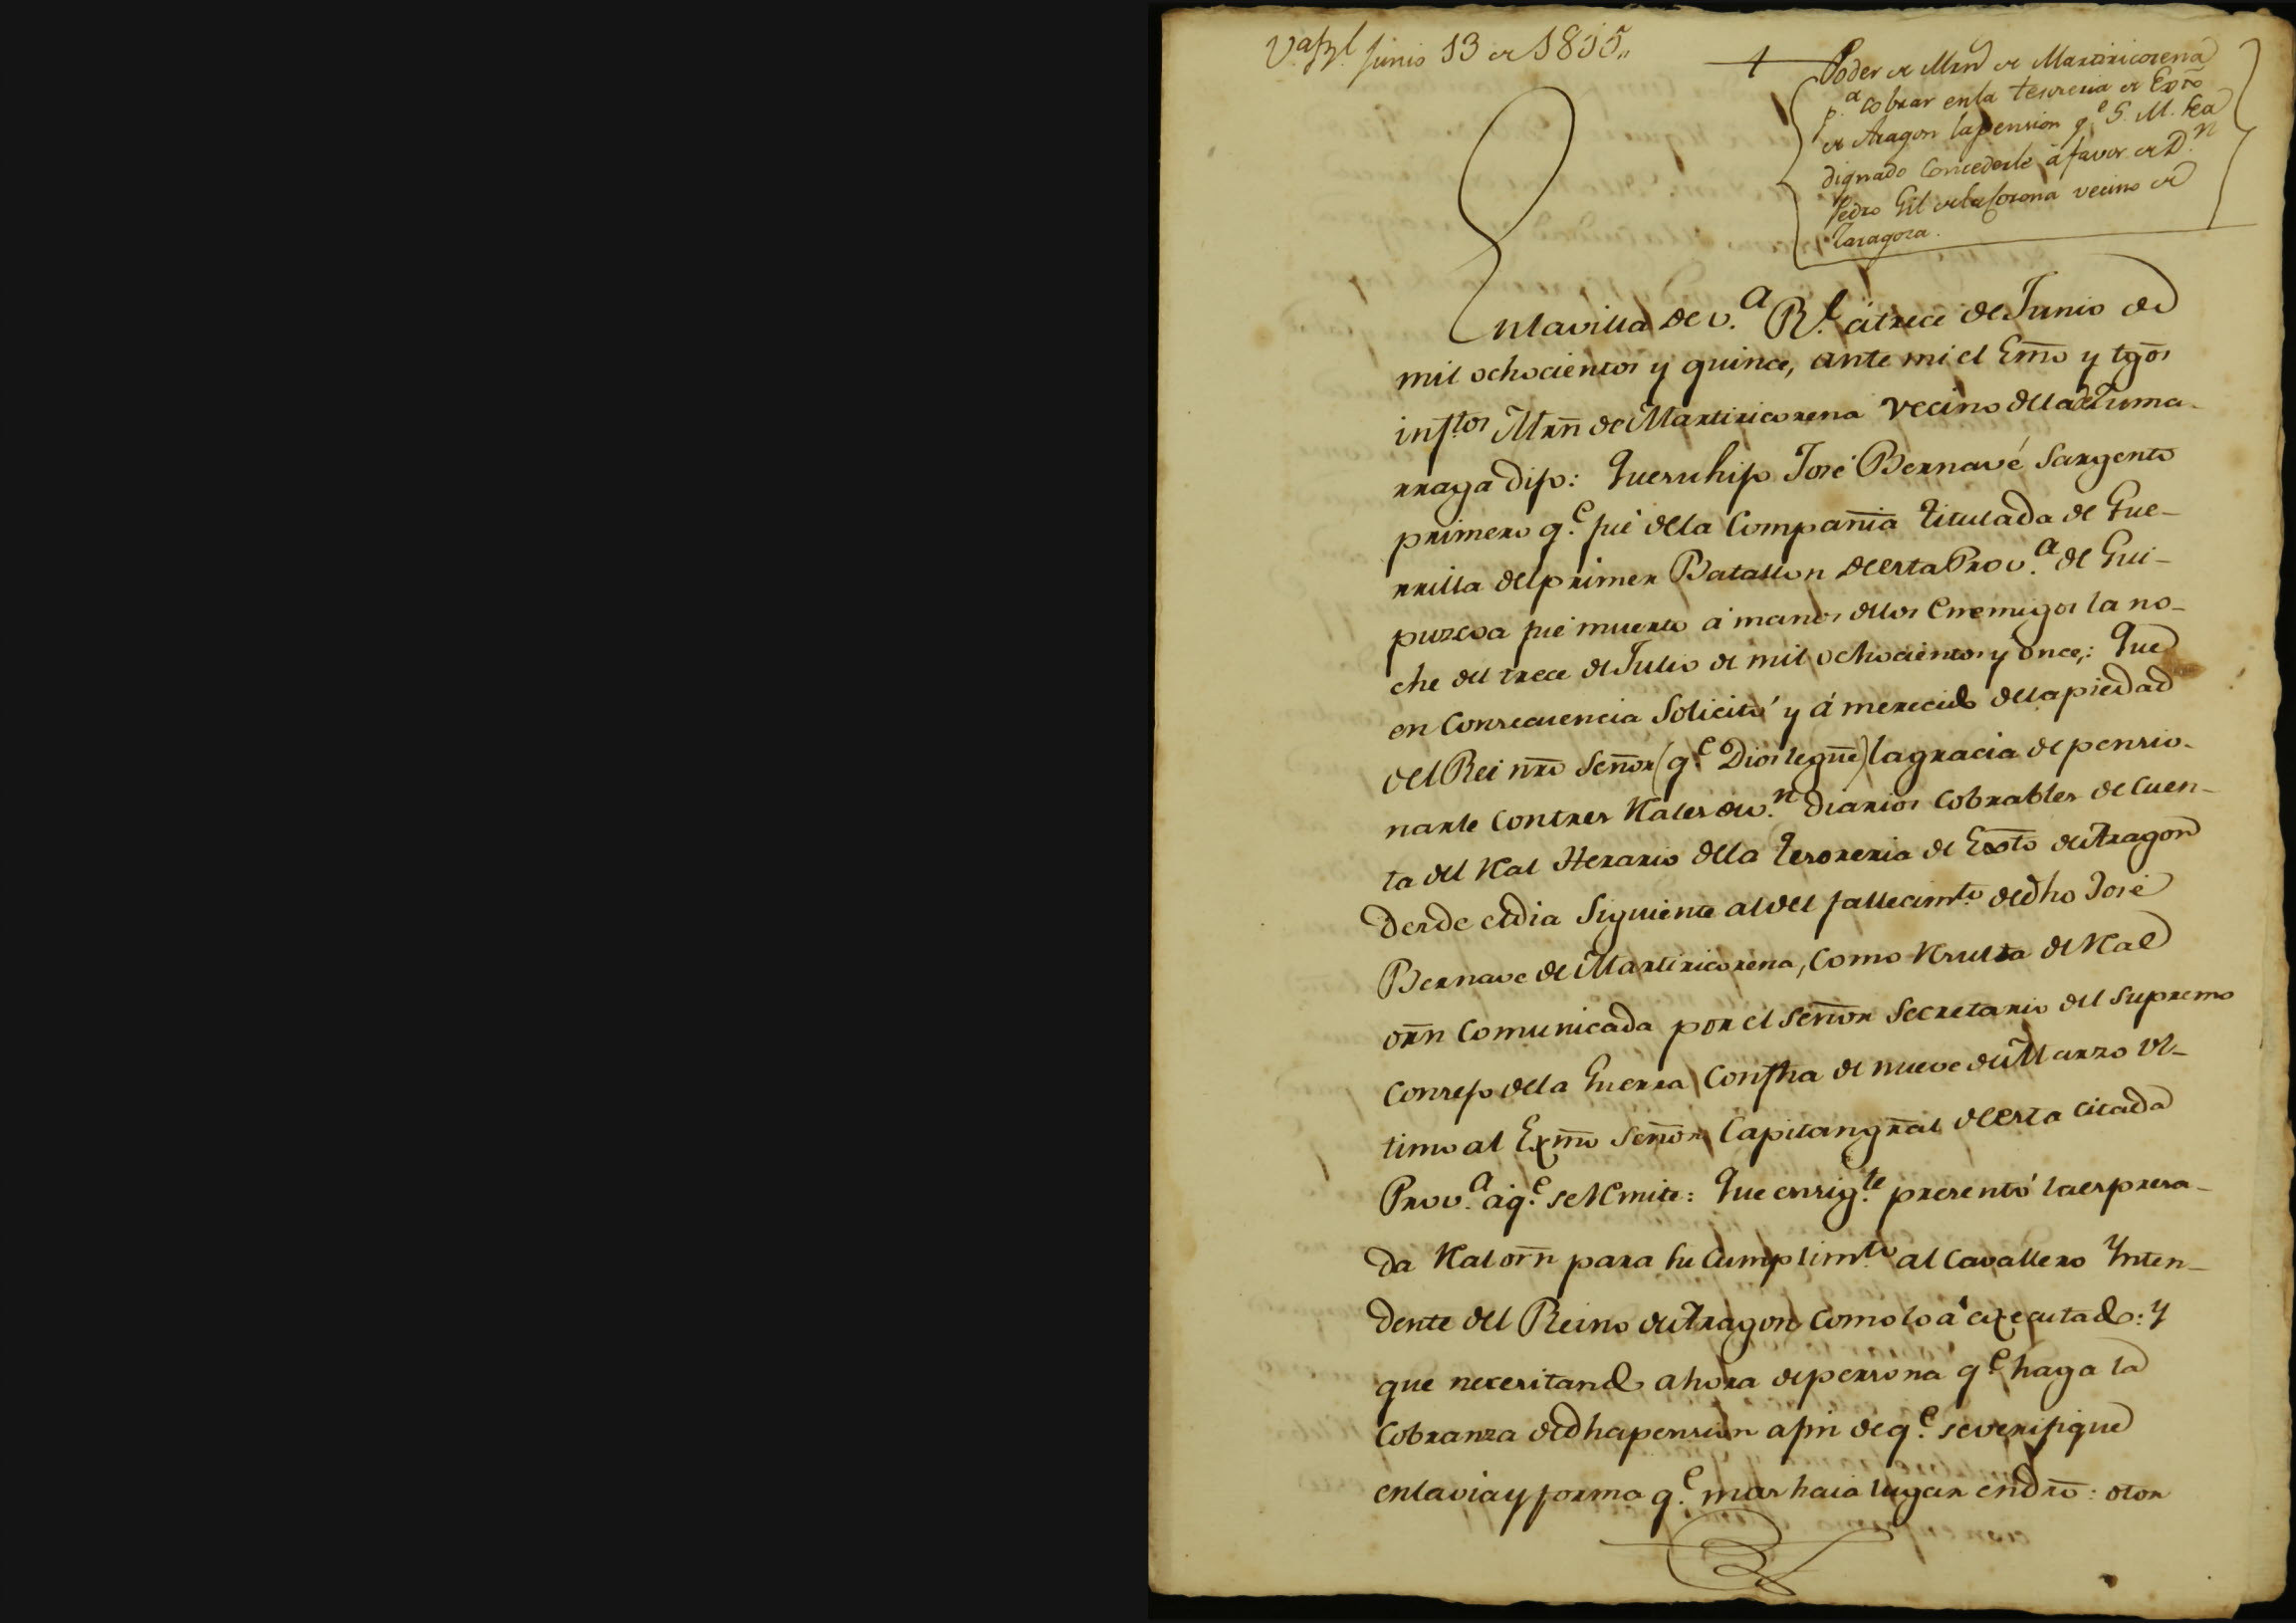 V.a R.l Junio 13 de 1815,,
Poder de Mrn de Martiricorena
p.a cobrar en la tesoreria de Exto
de Aragon la pension q.e S. M. sea
dignado concederle à favor de D.n
Pedro Gil de la Corona vecino de
Zaragoza.
En la villa de V.a R.l à trece de Junio de
mil ochocientos y quince, ante mi el Esno y tgos
infr.tos Mrn de Martiricorena vecino de la de Zuma-
rraga dijo: Que su hijo José Bernavé Sargento
primero q.e fué de la Compañia titulada de Gue-
rrilla del primer Batallon de esta Prov.a de Gui-
puzcoa fué muerto á manos de los Enemigos la no-
che del trece de Julio de mil ochocientos y once,: Que
en consecuencia Solicitó y á merecido de la piedad
del Rei nro Señor (q.e Dios le gue) la gracia de pensio-
narle con tres Rales de v.n diarios cobrables de cuen-
ta del Ral Herario de la Tesoreria de Exto de Aragon
desde el dia Siguiente al del fallecim.to de dho José
Bernave de Martiricorena, como Resulta de Ral
orn comunicada por el Señor Secretario del Supremo
Consejo de la Guerra con fha de nueve de Marzo ul-
timo al Exmo Señor Capitan gral de esta citada
Prov.a à q.e se Remite: Que en sig.te presentó la espresa-
da Ral orn para su cumplim.to al Cavallero Ynten-
dente del Reino de Aragon como lo á executado: y
que necesitando ahora de persona q.e haga la
Cobranza de dha pension a fin de q.e se verifique
en la via y forma q.e mas haia lugar en dro: otor